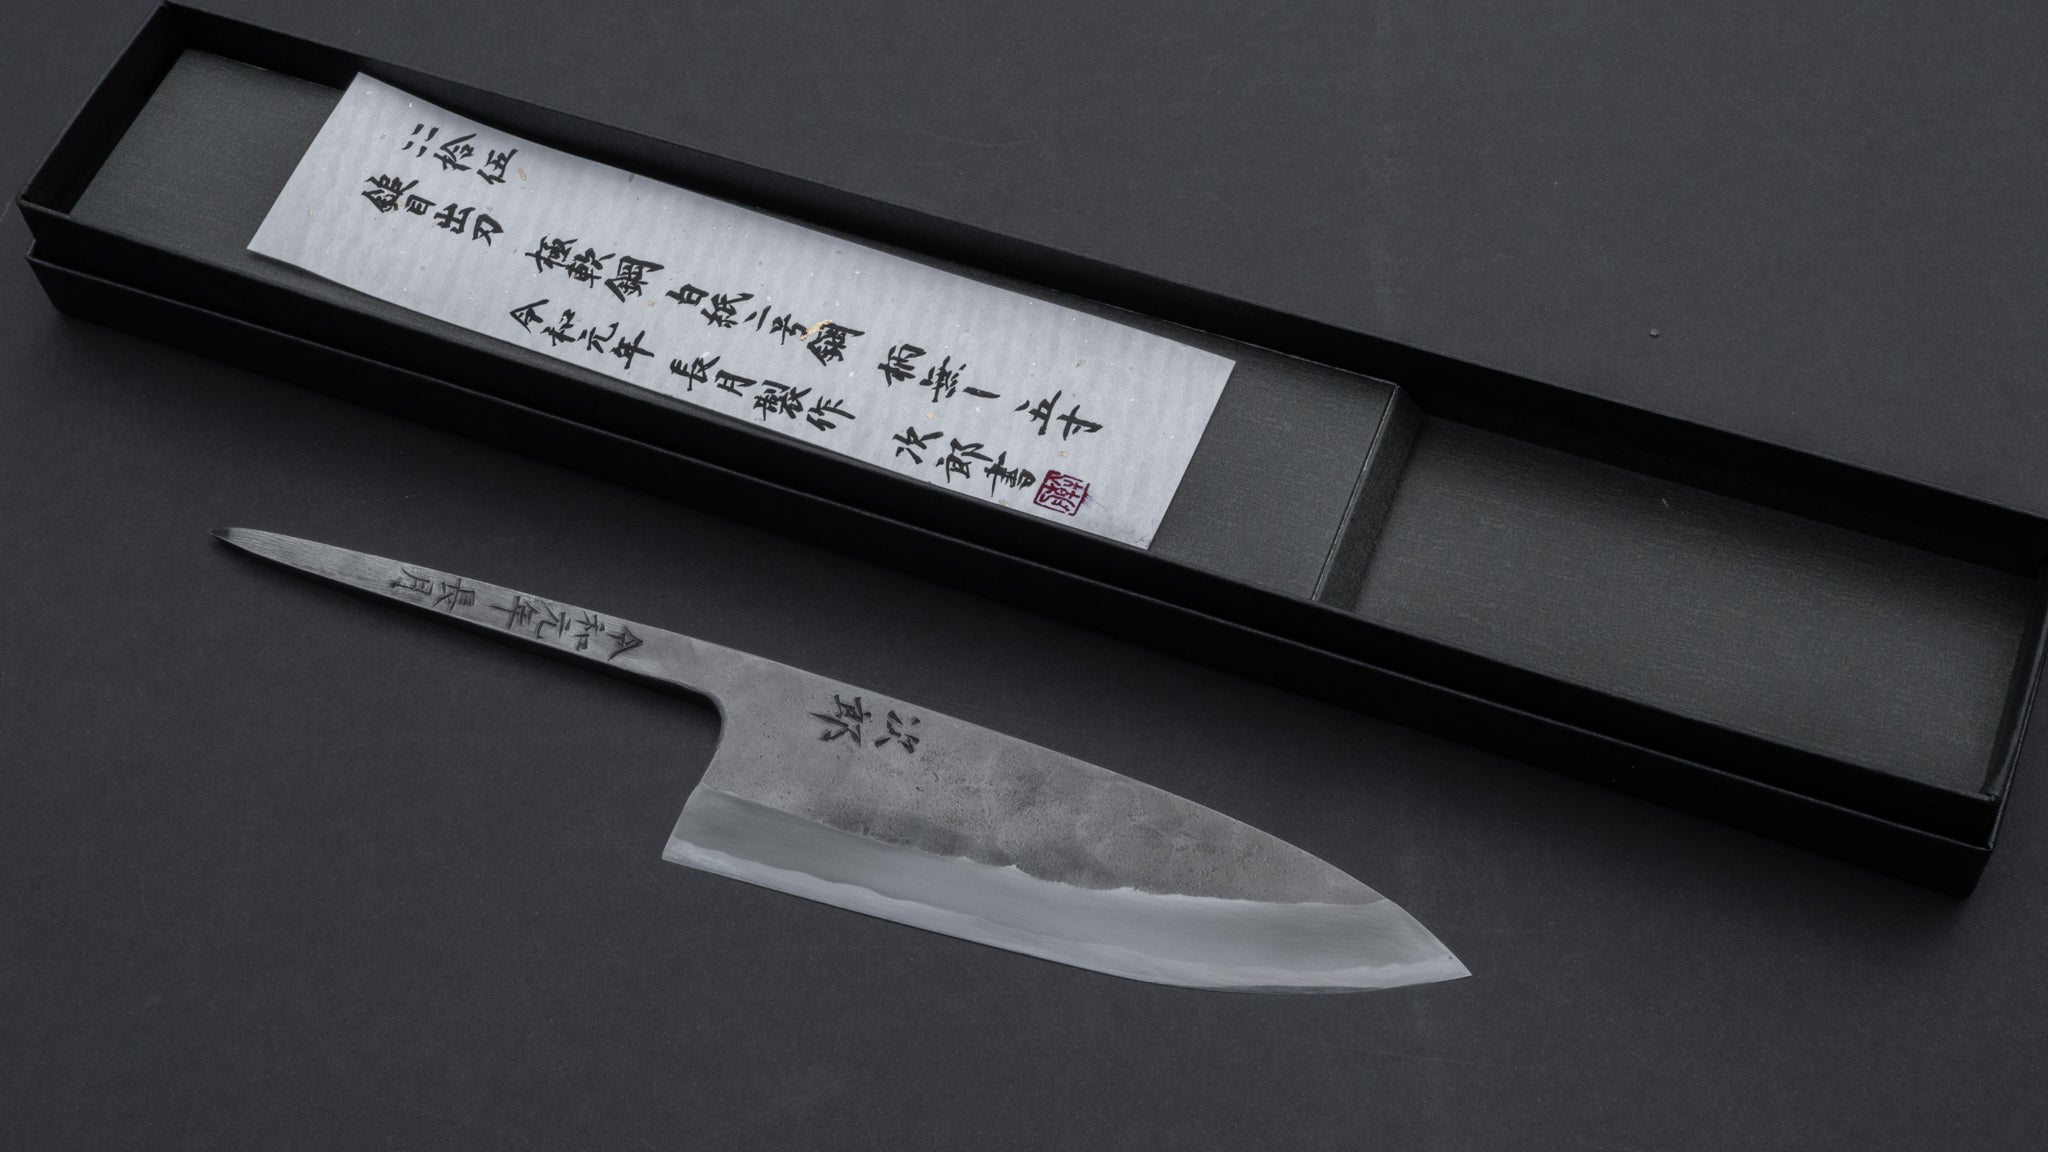 拾伍
鎚目出刃 極軟鋼 白紙二号鋼 柄無し 五寸
令和元年 長月製作 次郎書
次郎
令和元年長月